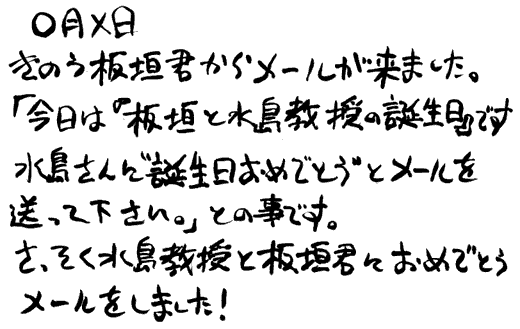 〇月×日
きのう板垣君からメールが来ました。
「今日は『板垣と水島教授の誕生日』です
水島さんに"誕生日おめでとう"とメールを
送って下さい。」との事です。
さっそく水島教授と板垣君におめでとう
メールをしました!